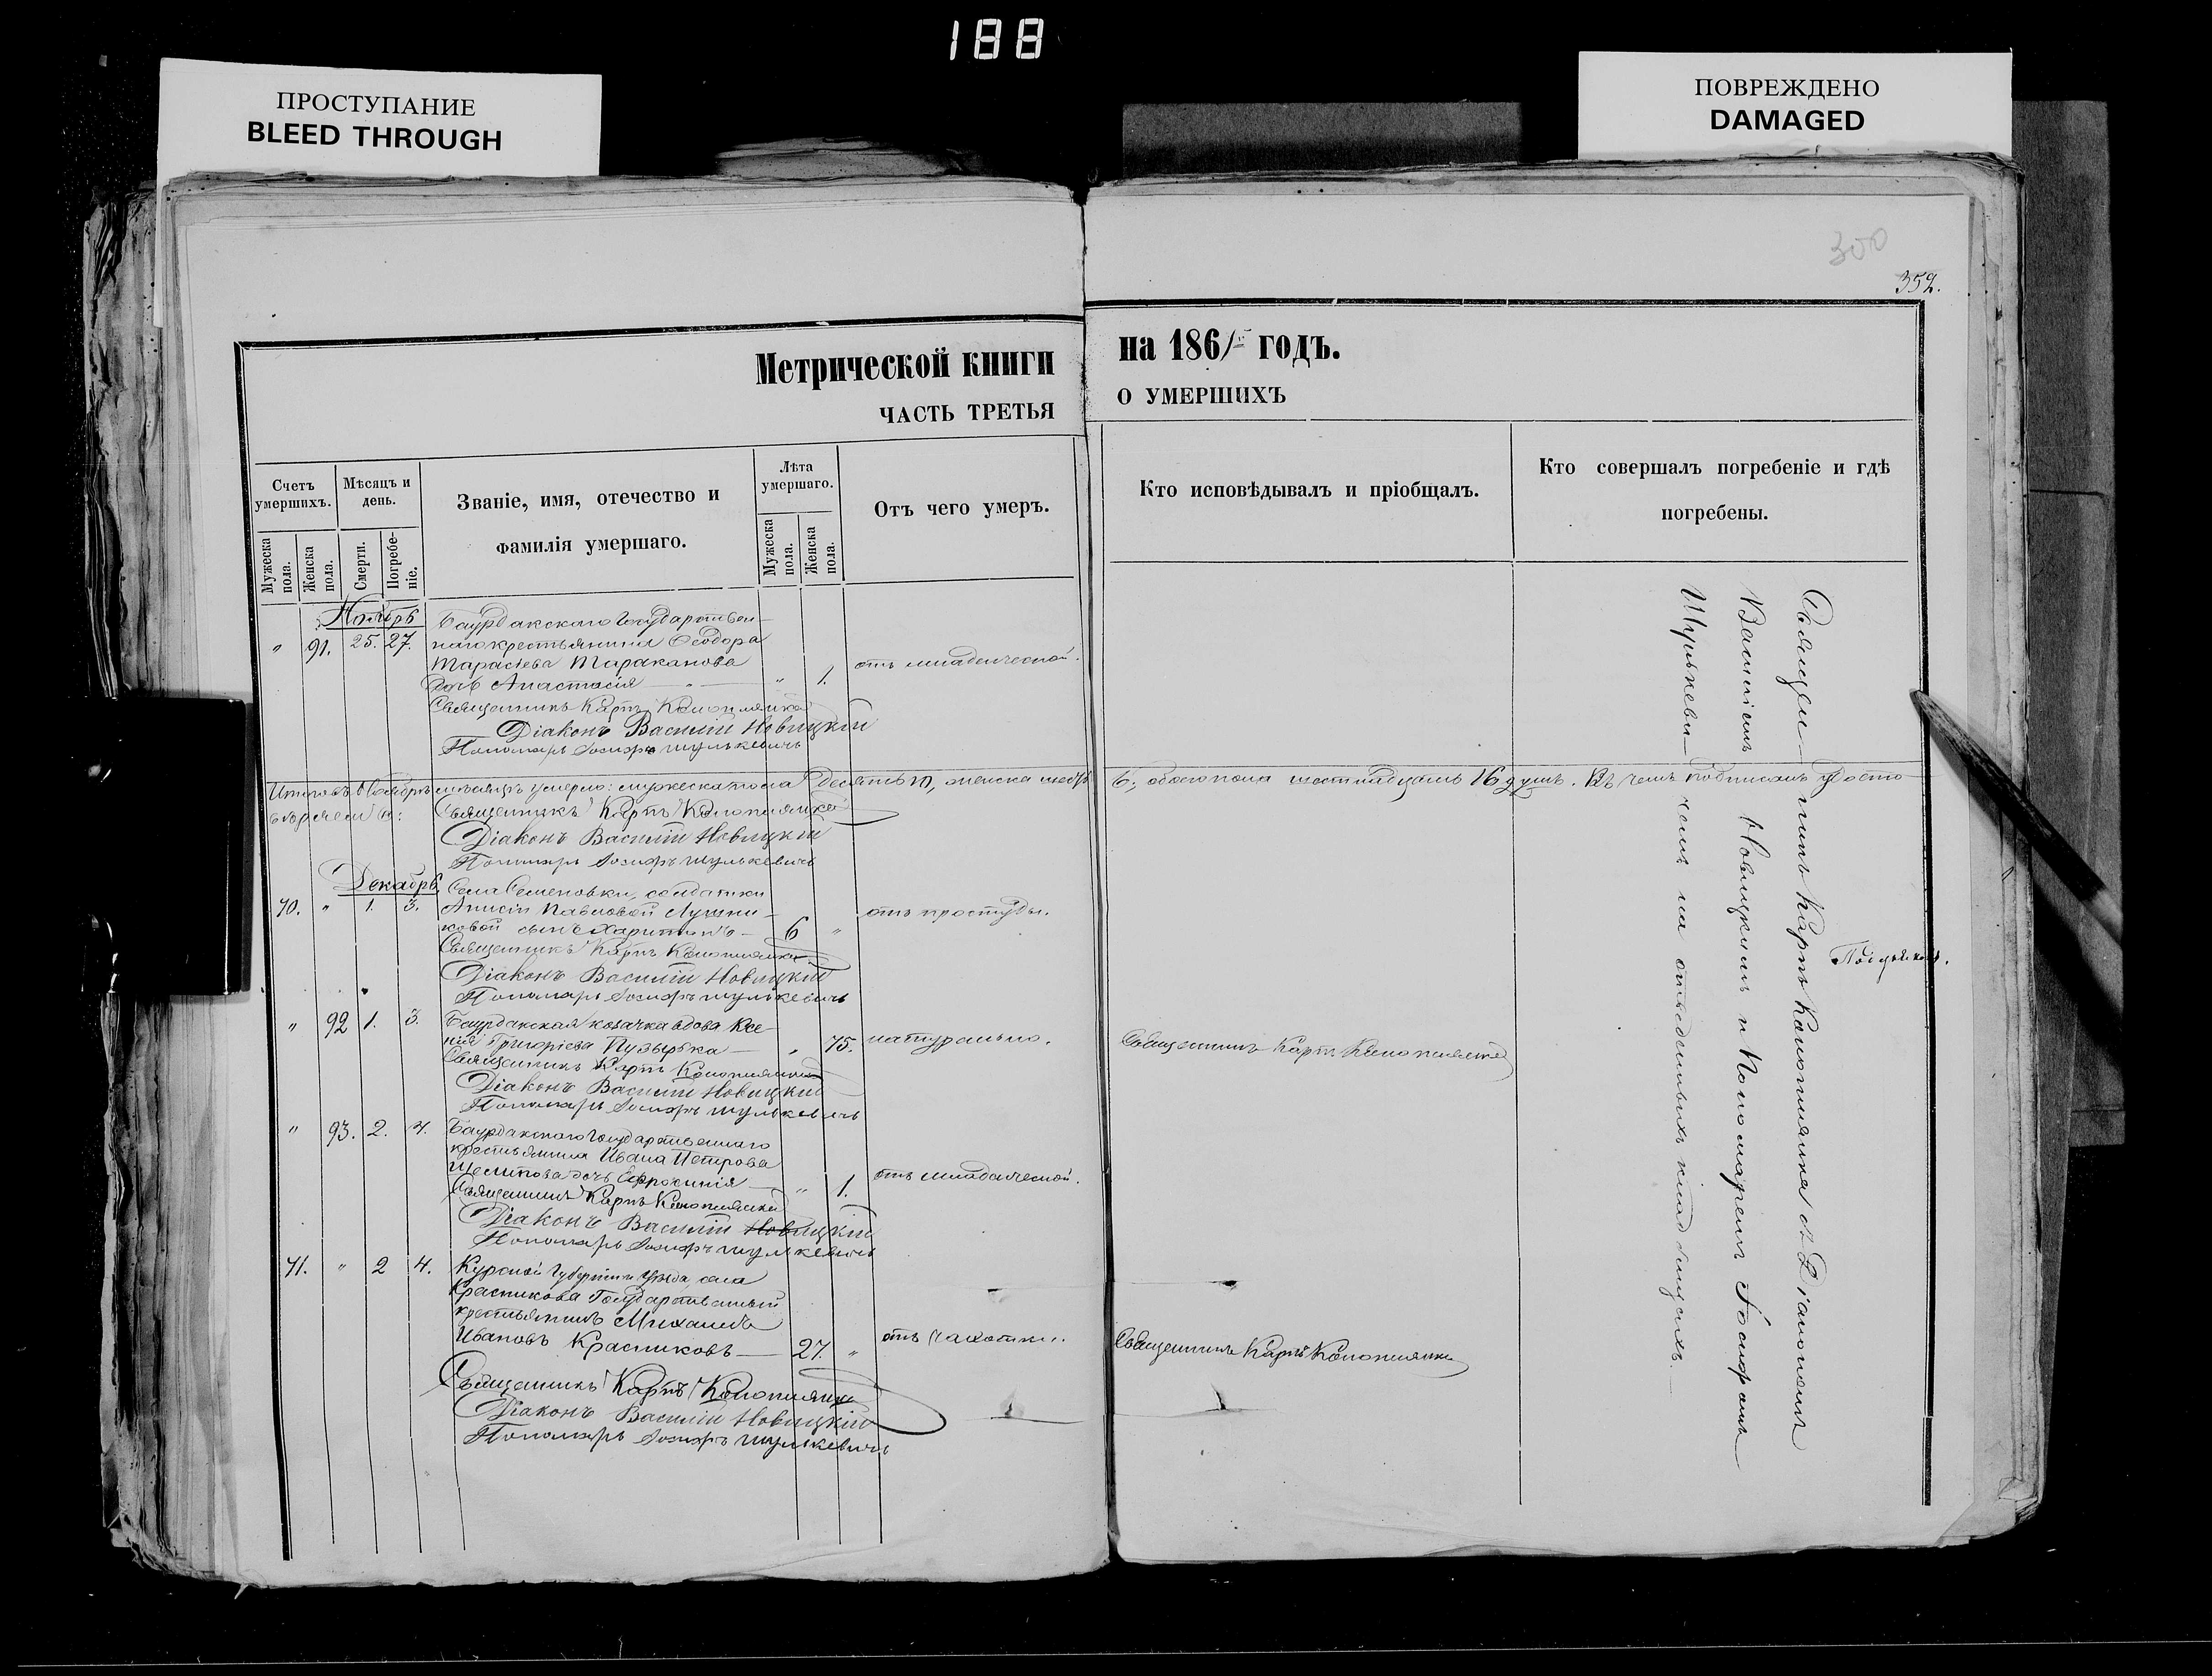 188
ПРОСТУПАНИЕ
BLEED THROUGH
ПОВРЕЖДЕНО
DAMAGED
300
352.
Метрической книги на 1861 годъ.
ЧАСТЬ ТРЕТЬЯ О УМЕРШИХЪ
Счетъ умершихъ.
Мужеска пола.
Женска пола.
Мѣсяцъ и день.
Смерти.
Погребеніе.
Званіе, имя, отечество и
фамилія умершаго.
Лѣта умершаго.
Мужеска пола.
Женска пола.
Отъ чего умеръ.
Кто исповѣдывалъ и пріобщалъ.
Кто совершалъ погребеніе и гдѣ
погребены.
Ноябрь
" 91. 25. 27.
Баурдакскаго Государствен-
наго крестьянина Ѳеодора
Тарасіева Тараканова
дочь Анастасія " 1. отъ младенческой.
Священникъ Карпъ Коноплянка
Діаконъ Василій Новицкій
Пономарь Іосифъ Шулькевичъ
Итого въ Ноябрѣ мѣсяцѣ умерло: мужеска пола десять 10, женска шесть 6, обоего пола шестнадцать 16 душъ. Въ чемъ подписомъ удосто-
Священникъ Карпъ Коноплянка
Діаконъ Василій Новицкій
Пономарь Іосифъ Шулькевичъ
Декабрь
70. " 1. 3.
Села Семеновки, солдатки
Анисіи Павловой Лушни-
ковой сынъ Харитонъ 6 " отъ простуды.
Священникъ Карпъ Коноплянка
Діаконъ Василій Новицкій
Пономарь Іосифъ Шулькевичъ
" 92 1. 3.
Баурдакская козачка вдова Ксе-
нія Григоріева Пузырька " 75. натурально. Священникъ Карпъ Коноплянка
Священникъ Карпъ Коноплянка
Діаконъ Василій Новицкій
Пономарь Іосифъ Шулькевичъ
" 93. 2. 4.
Баурдакскаго Государственнаго
крестьянина Ивана Петрова
дочь Ефросинія " 1. отъ младенческой.
Священникъ Карпъ Коноплянка
Діаконъ Василій Новицкій
Пономарь Іосифъ Шулькевичъ
71. " 2 4.
Курской Губерніи уѣзда, села
Красникова Государственный
крестьянинъ Михаилъ
Ивановъ Красниковъ 27. " отъ чахотки. Священникъ Карпъ Коноплянка
Священникъ Карпъ Коноплянка
Діаконъ Василій Новицкій
Пономарь Іосифъ Шулькевичъ
Священникъ Карпъ Конопляника съ Діакономъ
Василіемъ Новицкимъ и Пономаремъ Іосифомъ
Шулькеви-чемъ на отведенныхъ кладбищахъ.